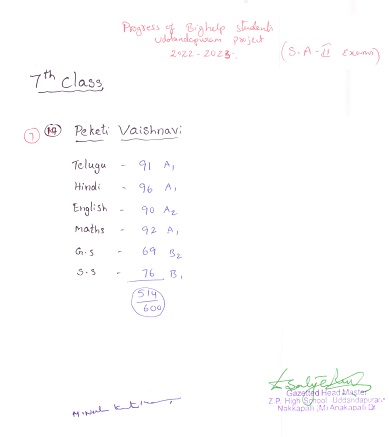 Progress of Bighelp students
Uddandapuram project
2022-2023.
(S.A-II Exams)
7th Class
7 19 Peketi Vaishnavi
Telugu - 91 A1
Hindi - 96 A1
English - 90 A2
Maths - 92 A1
G.S - 69 B2
S.S - 76 B1
514
600
Gazetted Head Master
Z.P. High School Uddandapuram
Nakkapalli (M) Anakapalli Dt